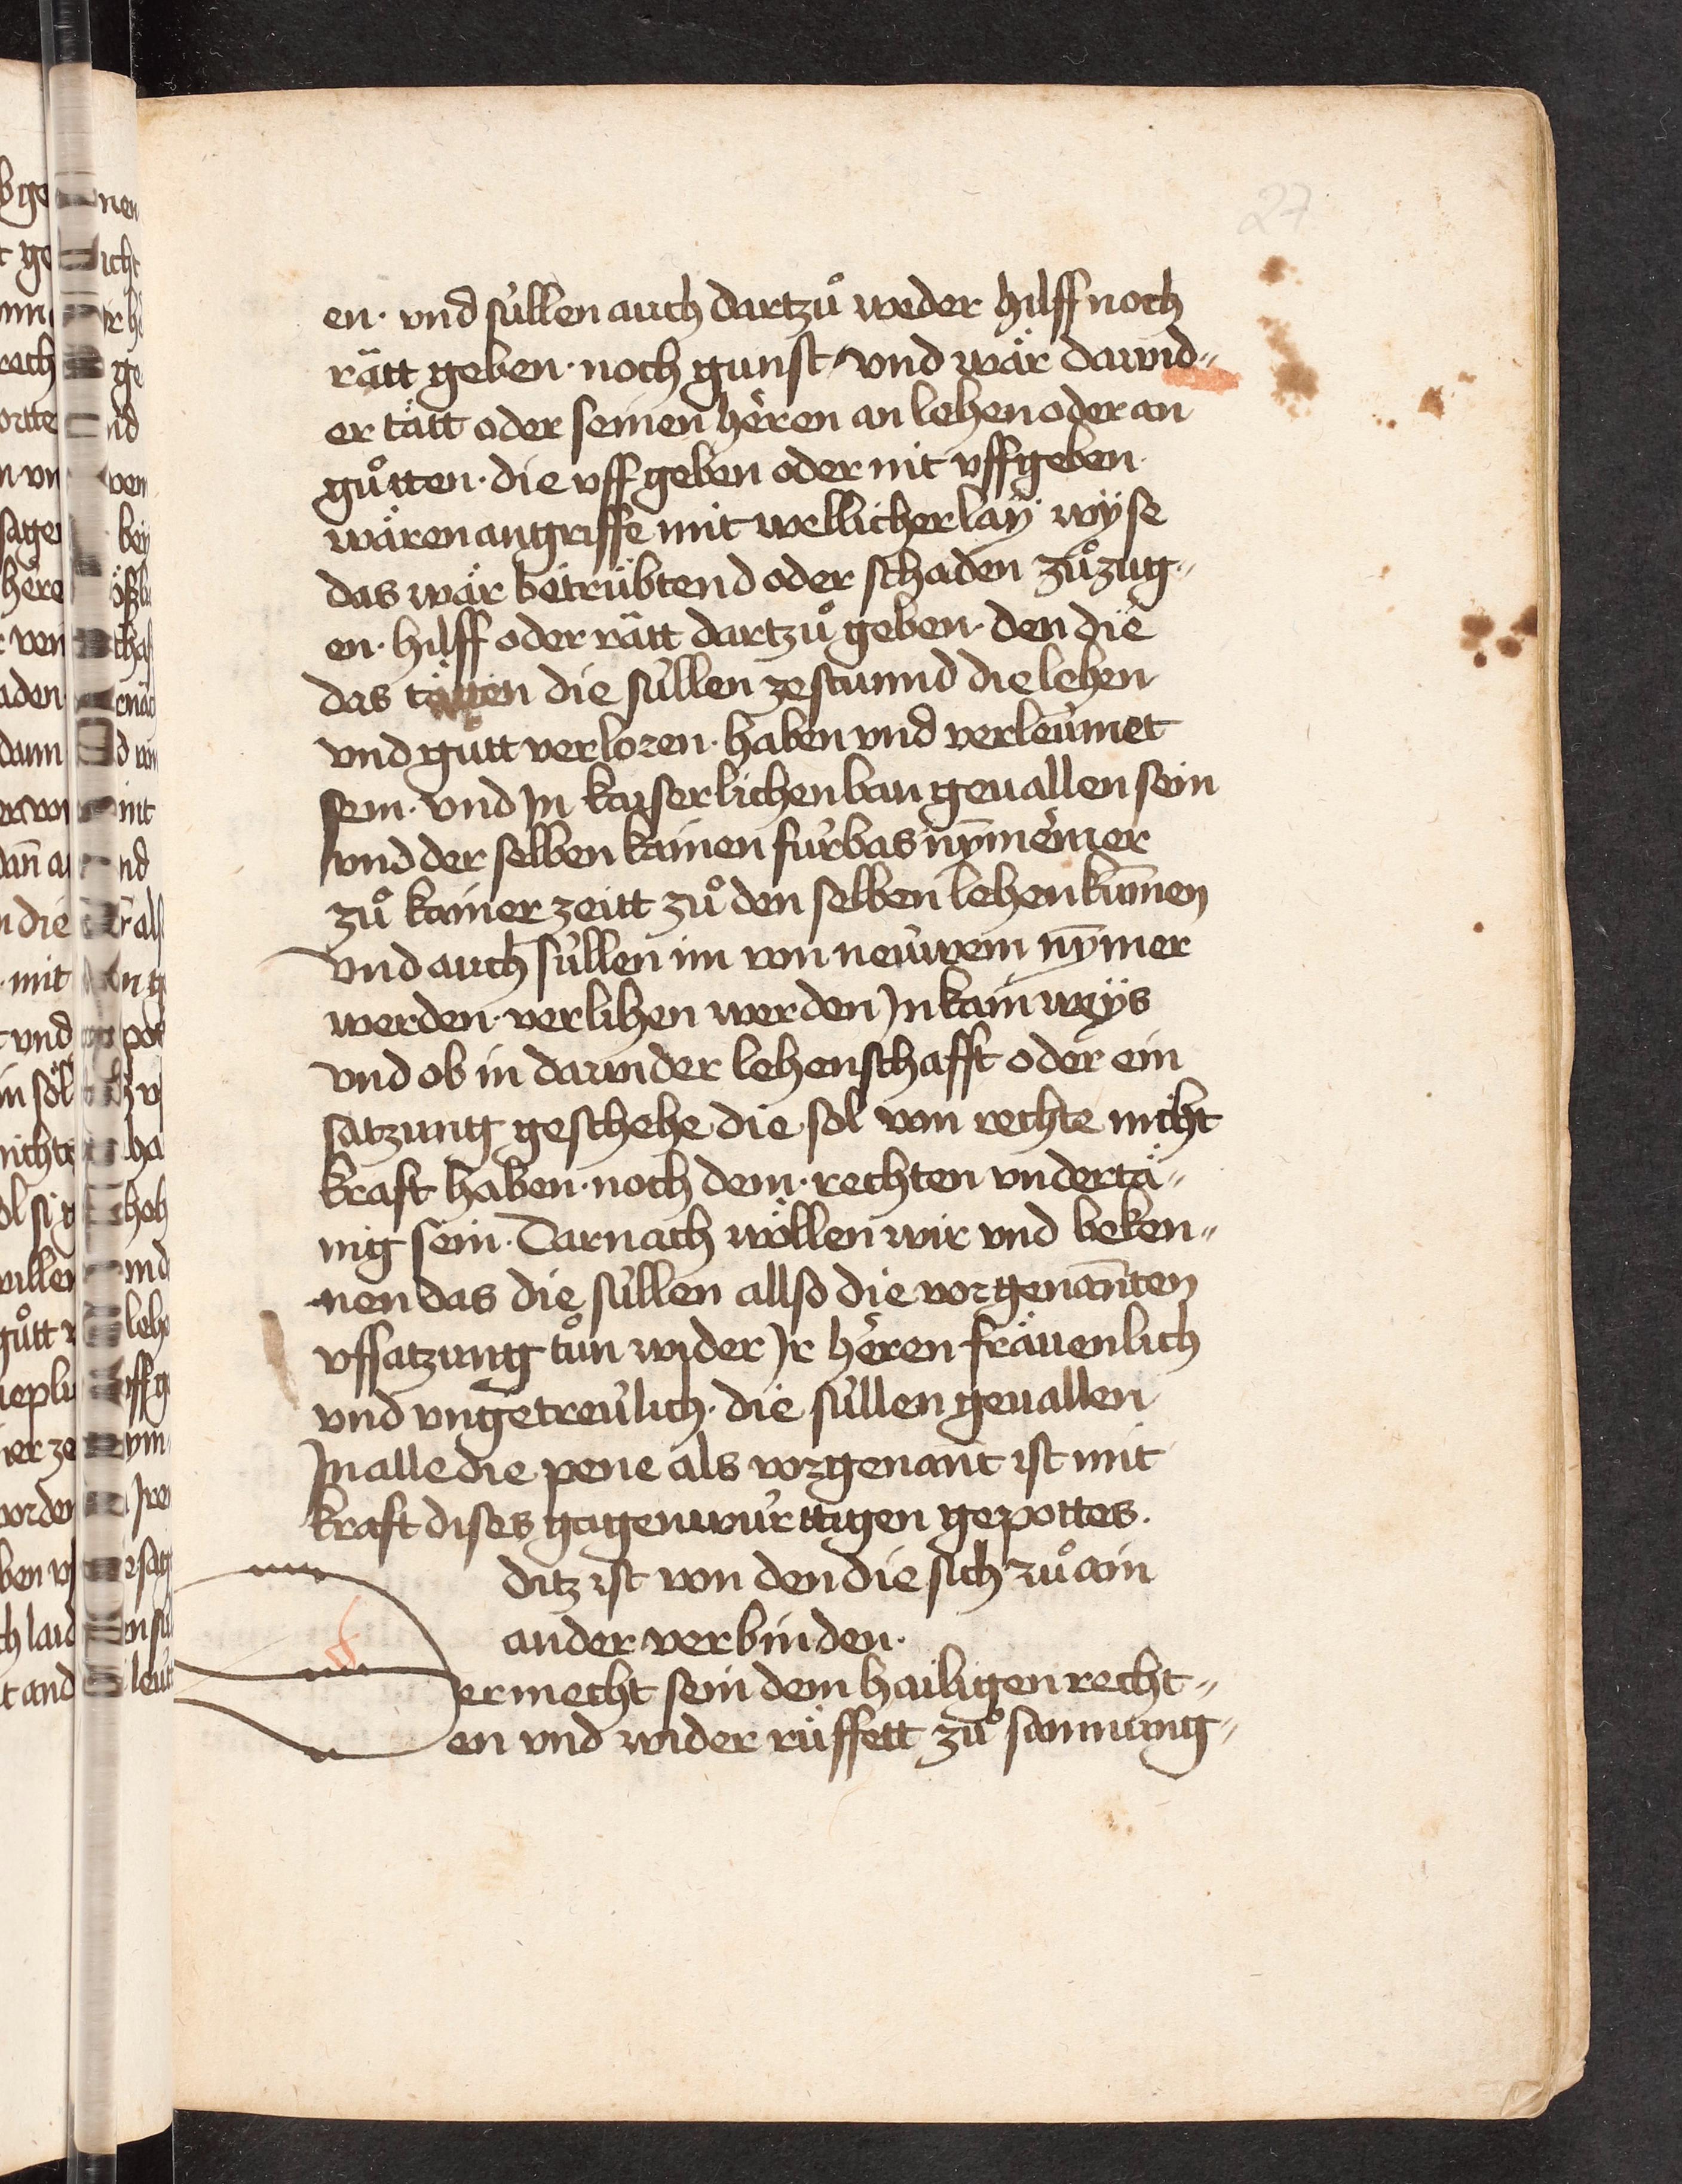 27
en · vnd süllen auch dartzů weder hilff noch
rätt geben · noch gunst / vnd wär dawid〃
er tätt oder seinen heren an lehen oder an
gůtten · die vff geben oder nit vffgeben
wären angriffe mit wellicherlaÿ wÿse
das wär betrübtend oder schaden zůzüg〃
en · hilff oder rätt dartzů geben · den die
das täten die süllen zestunnd die lehen
vnd gutt verloren · haben vnd verleümet
sein · vnd Jn kaiserlichen ban geuallen sein
vnd der selben kainen fürbas nȳmēmer
zů kainer zeitt zů den selben lehen kum̄en
vnd auch süllen im von neuwem nȳmer
werden · verlihen werden Jn kain weÿs
vnd ob in dawider lehenschafft oder ein
satzung geschehe die sol von rechte nicht
kraft haben · noch dem · rechten vndertä〃
nig sein · Darnach wöllen wir vnd beken〃
nen das die süllen allso die vorgenan̄ten
vffsatzung tůn wider Jr heren fräuenlich
vnd vngetreülich · die süllen geuallen
Jn alle die pene als vorgenant ist mit
kraft dises gagenwürttigen gepottes ·
ditz ist von den die sich zů ain
ander verbinden ·
ermecht sein dem hailigen recht〃
en vnd wider rüffett zů samnung〃